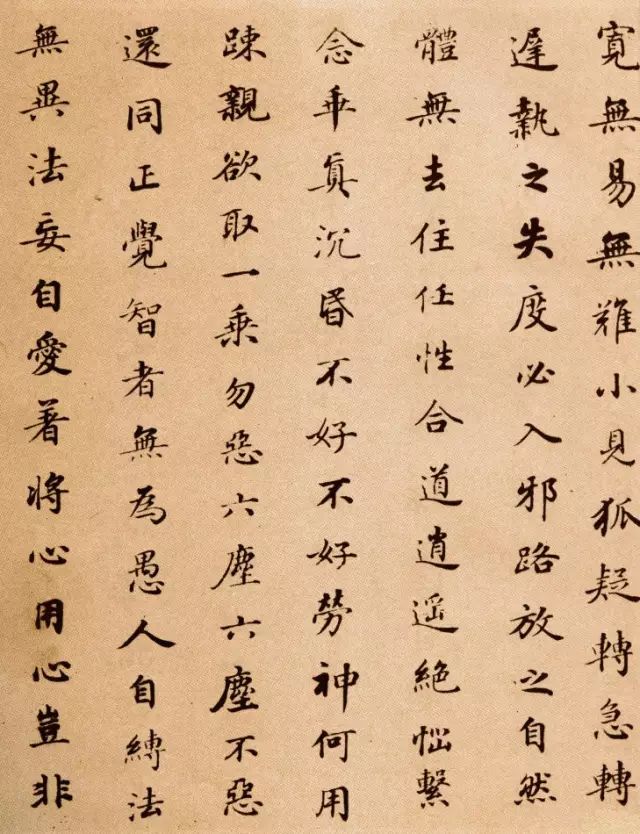 寬無易無難小見狐疑轉急轉
遲執之失度必入邪路放之自然
體無去住任性合道逍遥絶惱繫
念乖真沉昏不好不好勞神何用
踈親欲取一乗勿惡六塵六塵不惡
還同正覺智者無為愚人自縛法
無異法妄自愛著將心用心豈非